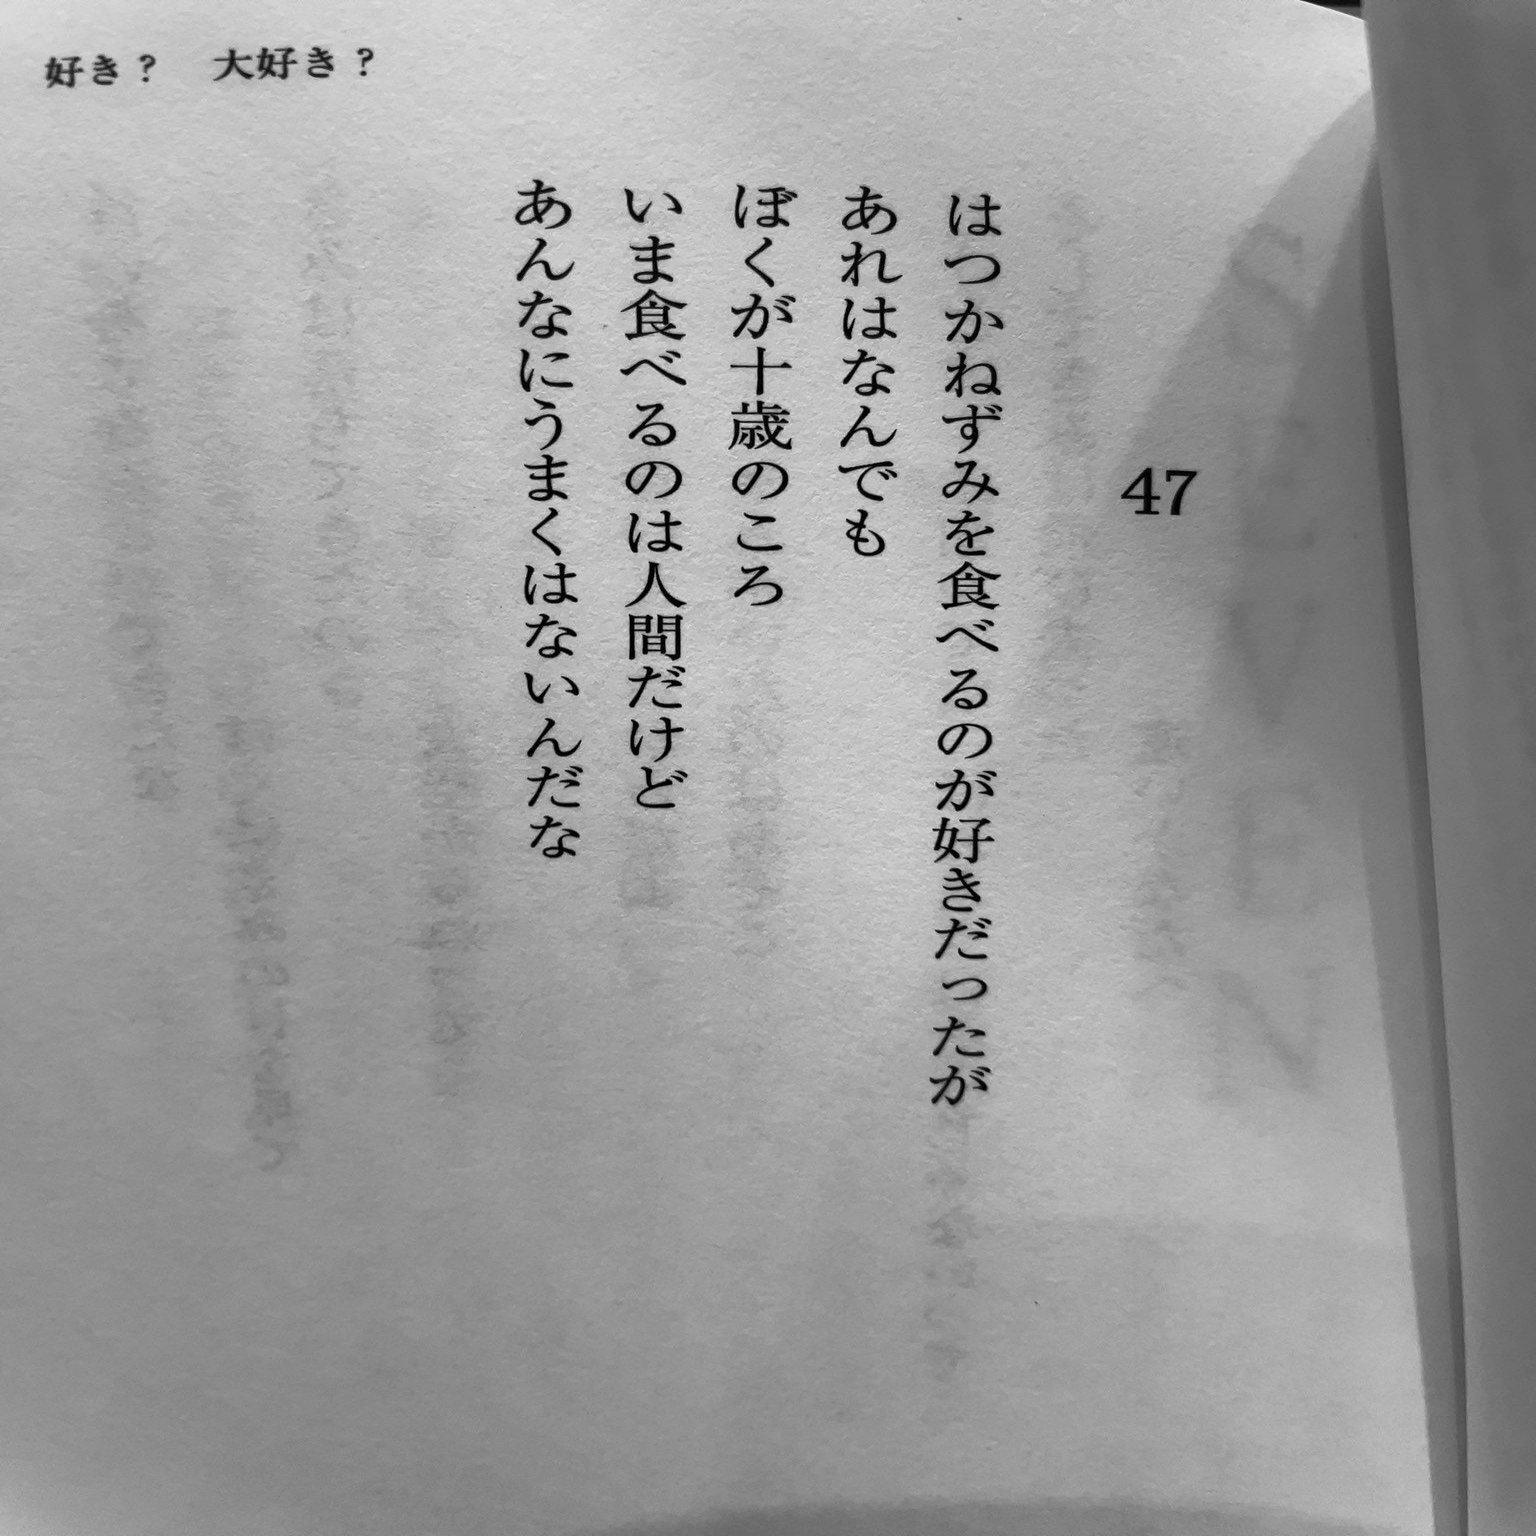 好き？　大好き？
47
はつかねずみを食べるのが好きだったが
あれはなんでも
ぼくが十歳のころ
いま食べるのは人間だけど
あんなにうまくはないんだな